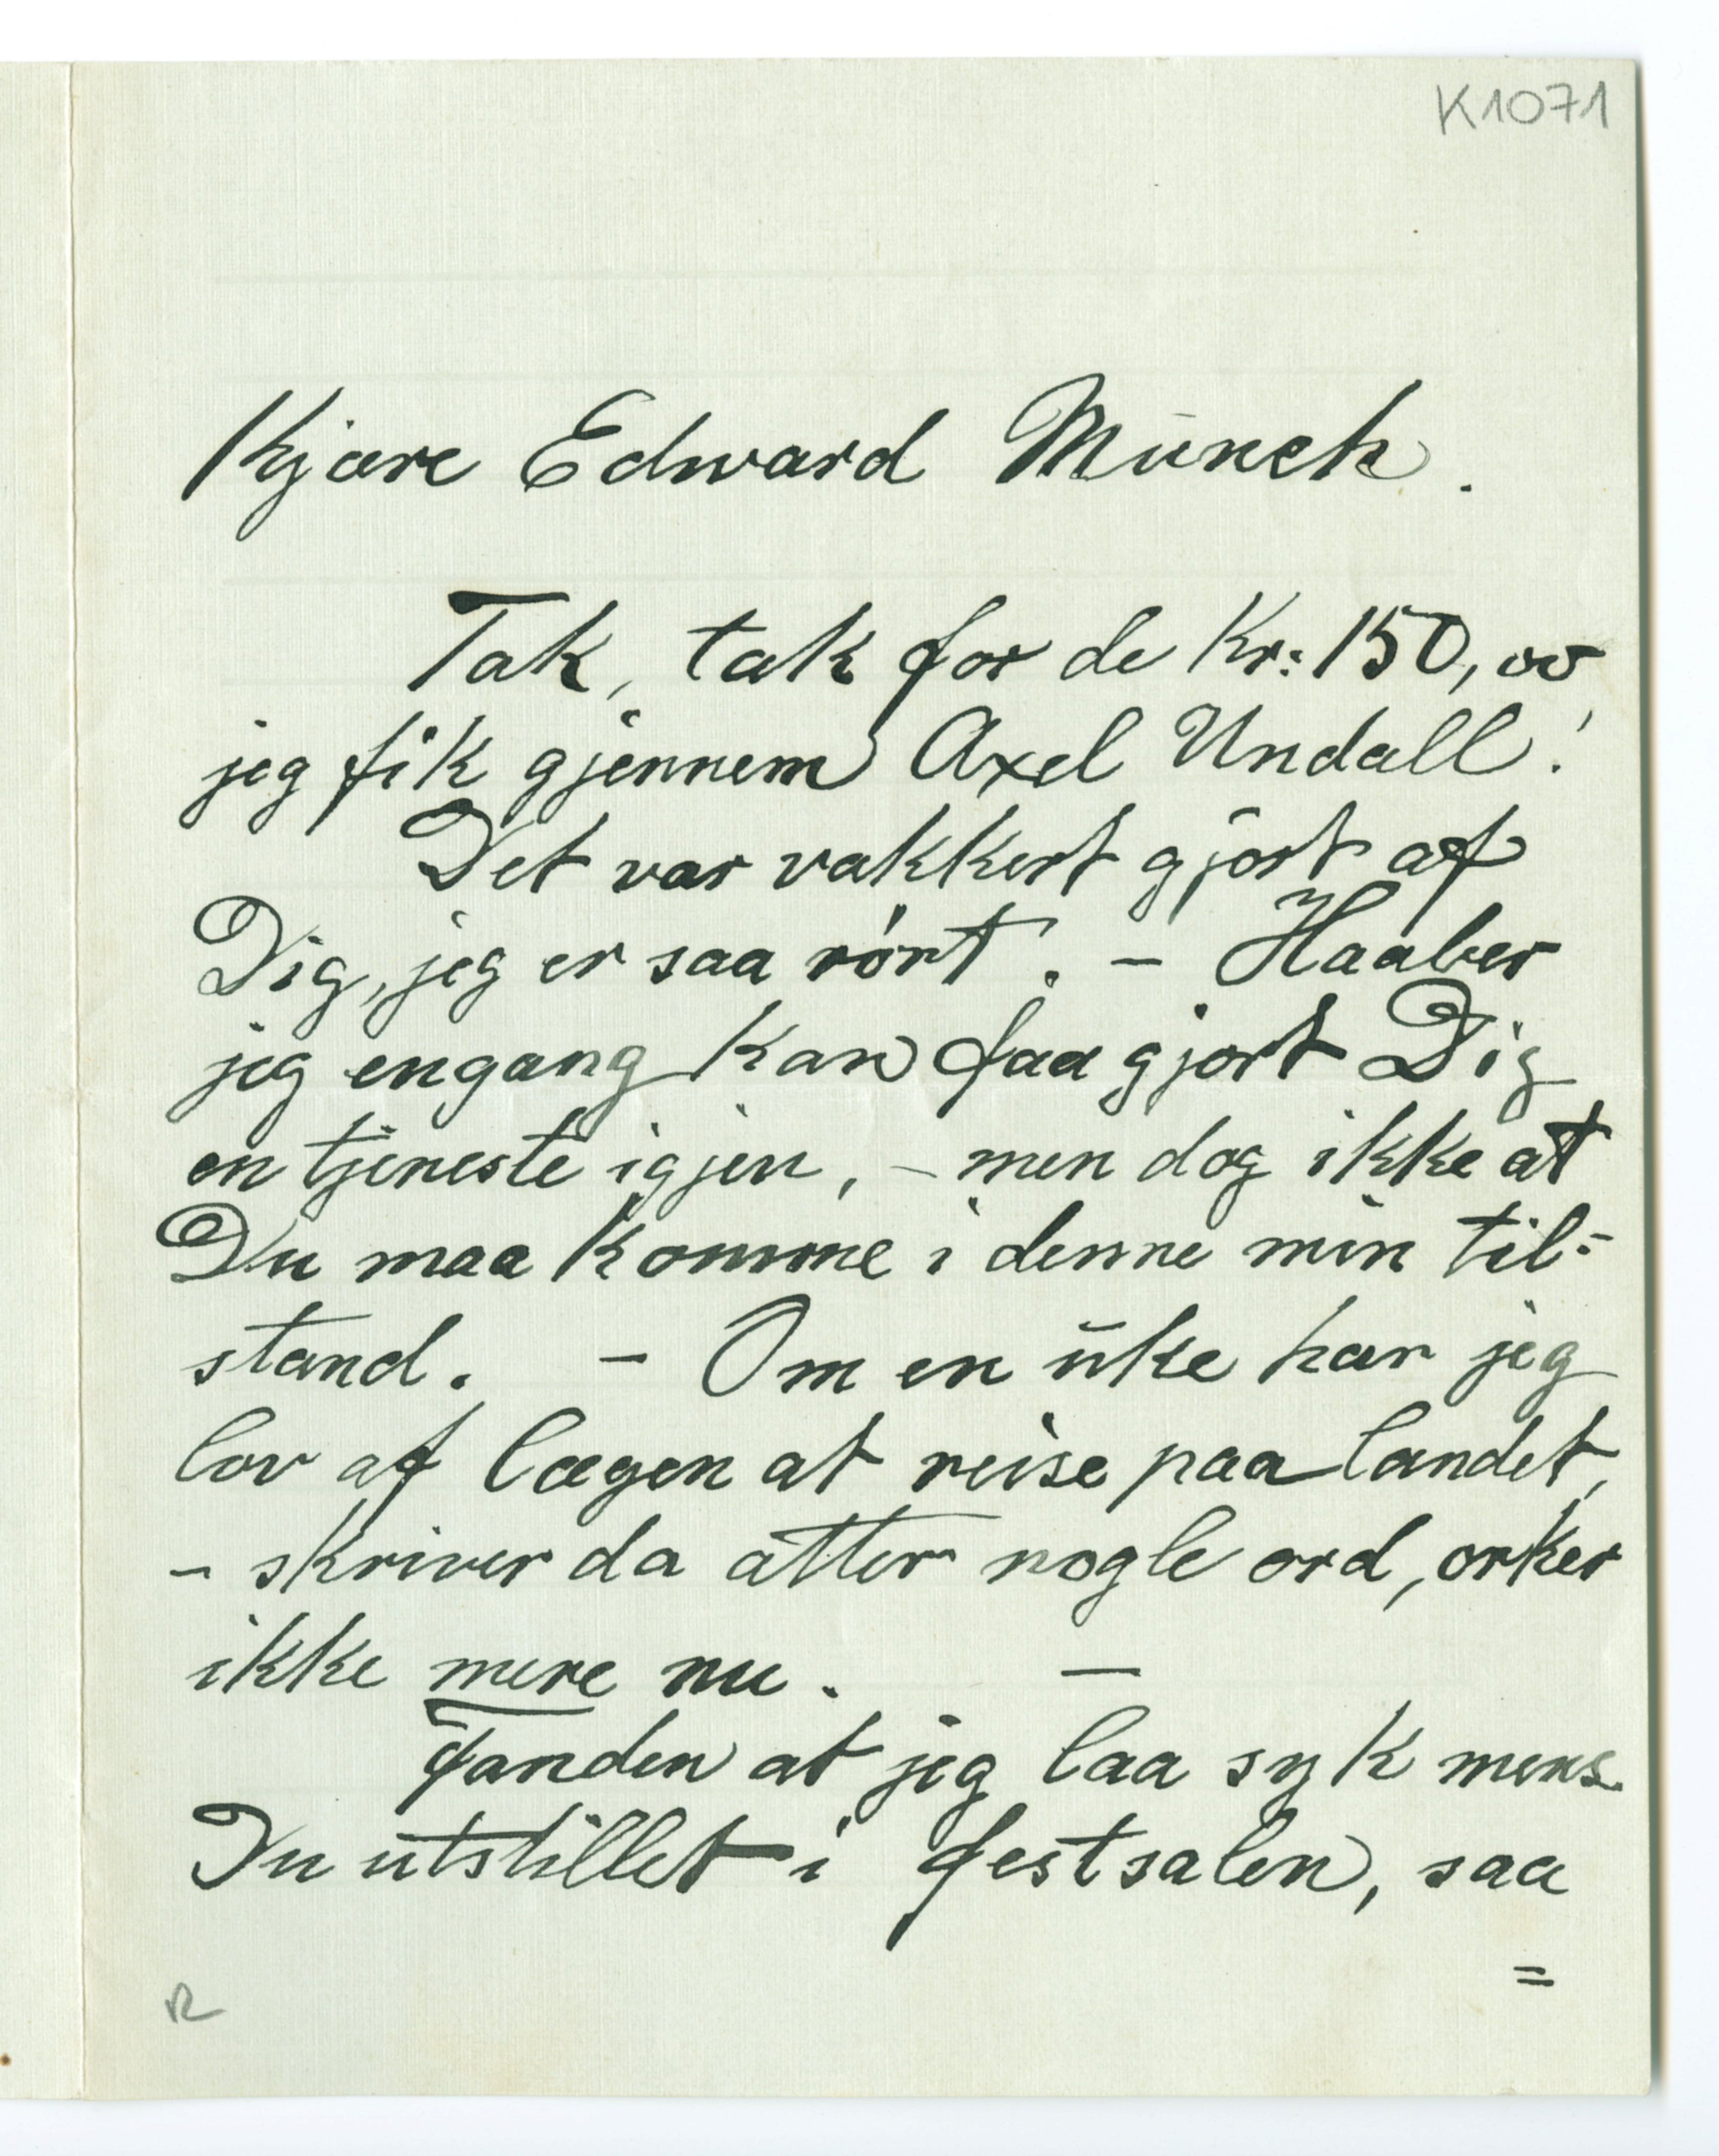 K1071
Kjære Edward Münch.
Tak, tak for de Kr: 150,00
jeg fik gjennem Axel Undall!
Det var vakkert gjort af
Dig, jeg er saa rørt. – Haaber
jeg engang kan faa gjort Dig
en tjeneste igjen, – men dog ikke at
Du maa komme i denne min til=
stand. – Om en uke har jeg
lov af lægen at reise paa landet,
– skriver da atter nogle ord, orker
ikke mere nu. –
Fanden at jeg laa syk mens
Du utstillet i festsalen, saa
=
R